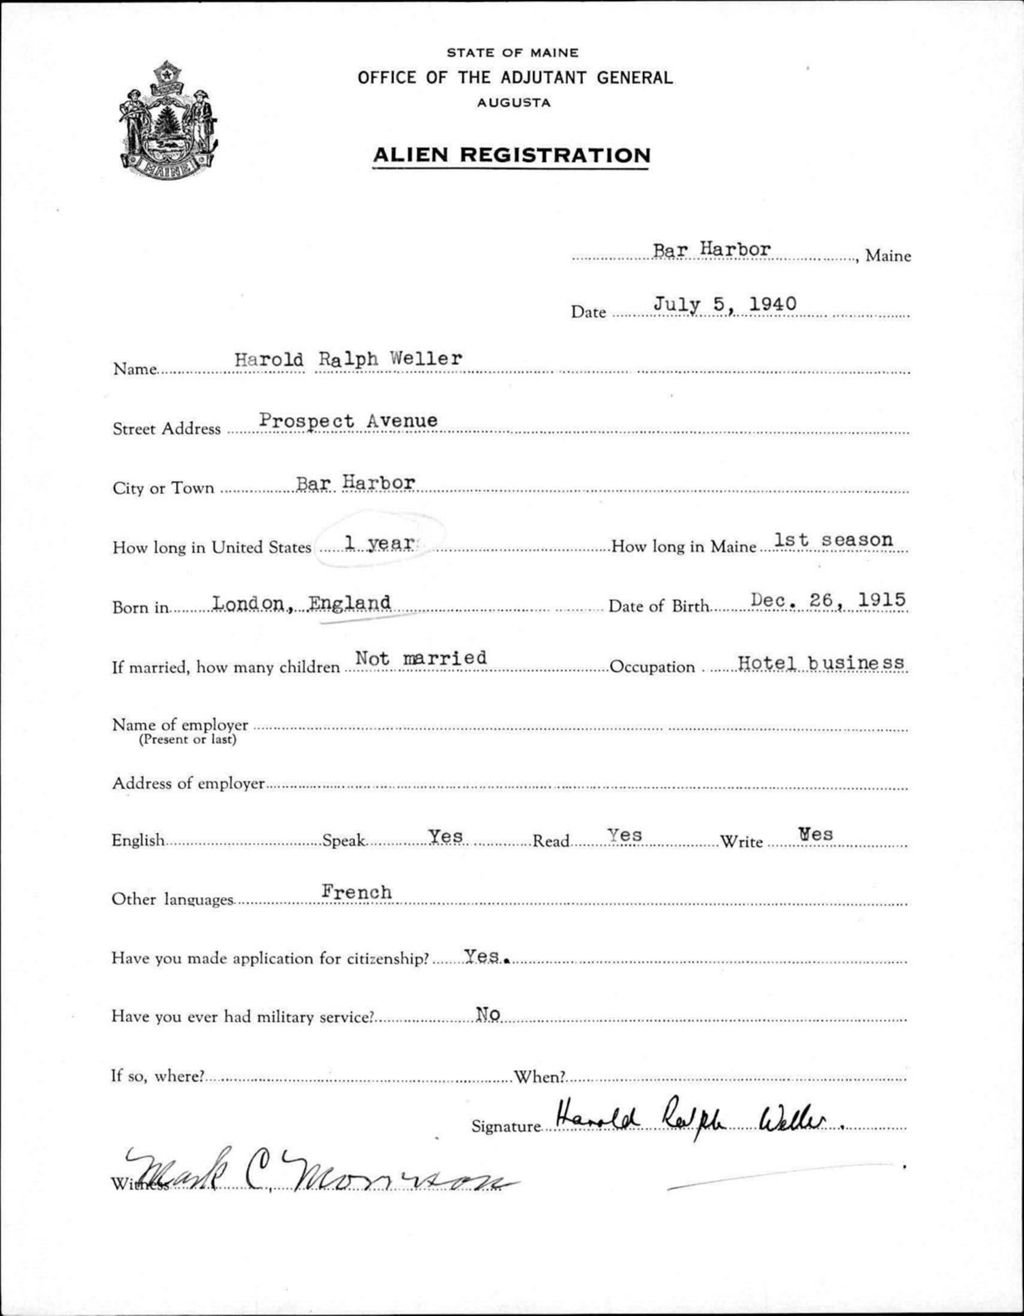 STATE OF MAINE
OFFICE OF THE ADJUTANT GENERAL
AUGUSTA
ALIEN REGISTRATION
MAINE
Bar Harbor, Maine
Date July 5, 1940
Name Harold Ralph Weller
Street Address Prospect Avenue
City or Town Bar Harbor
How long in United States 1 year How long in Maine 1st season
Born in London, England Date of Birth Dec. 26, 1915
If married, how many children Not married Occupation Hotel business
Name of employer
(Present or last)
Address of employer
English Speak Yes Read Yes Write Yes
Other languages French
Have you made application for citizenship? Yes.
Have you ever had military service? No
If so, where? When?
Signature Harold Ralph Weller.
Witness Mark C. Morrison